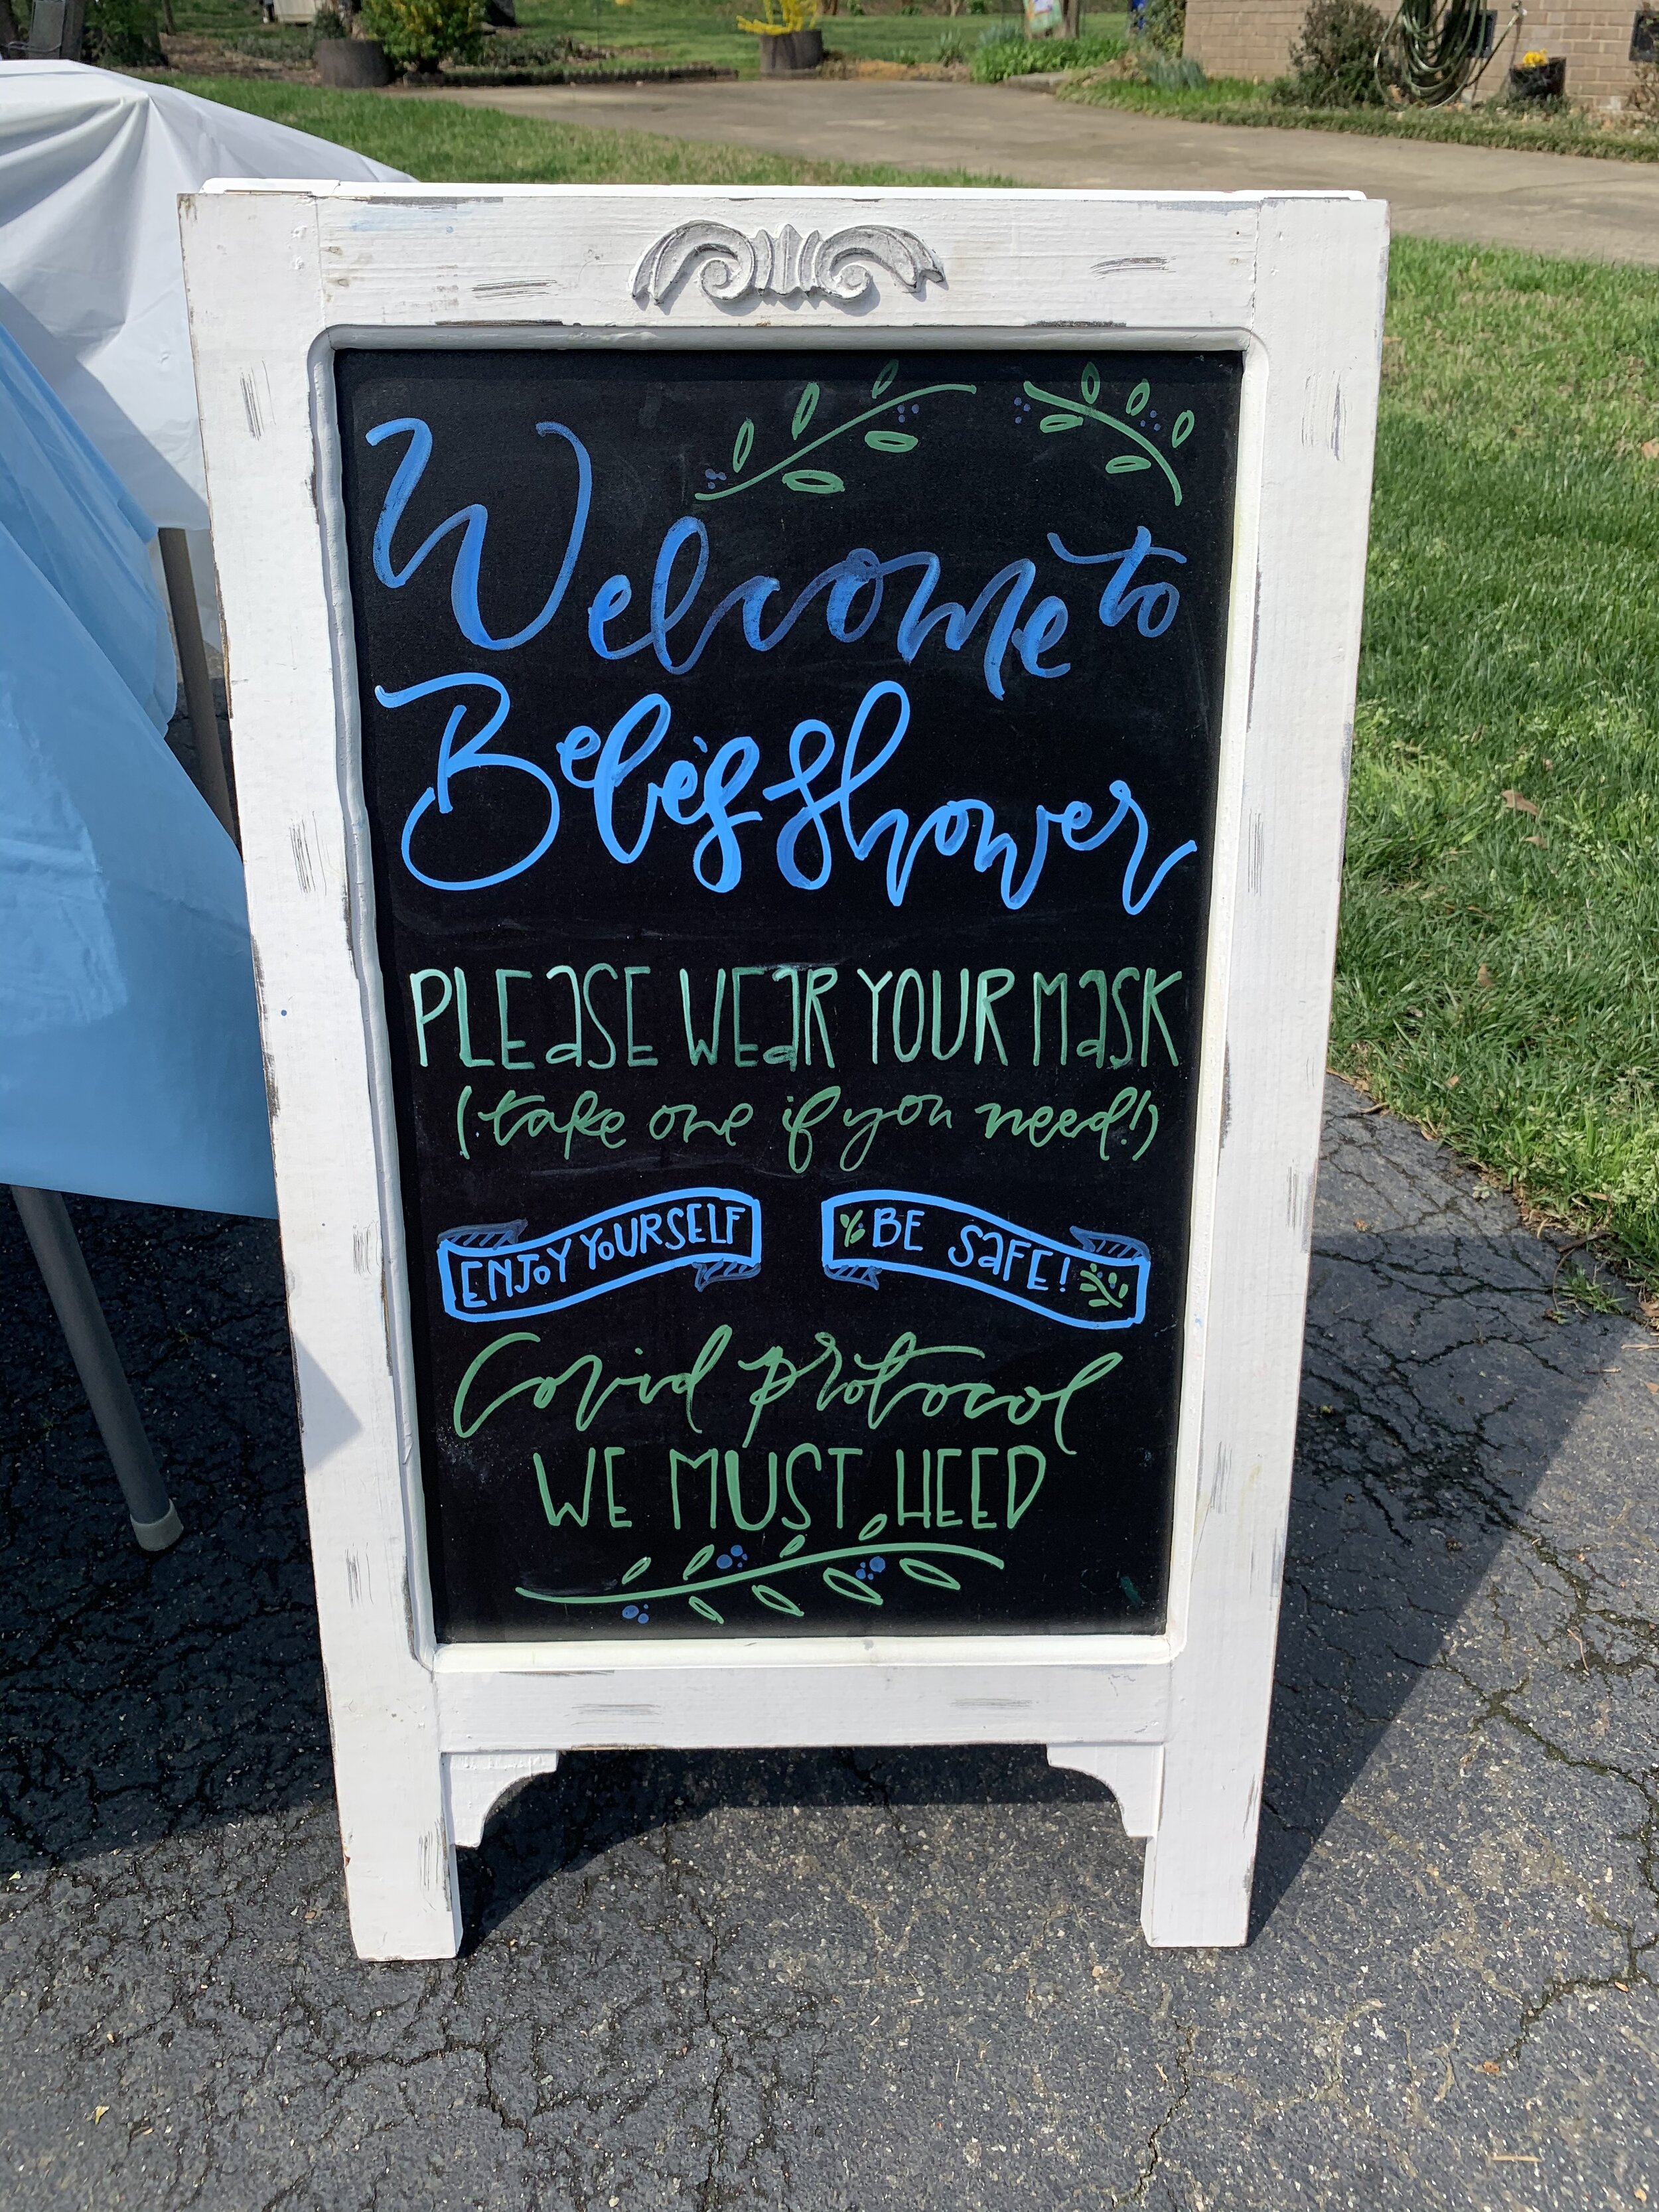 Welcome to
Bebe's Shower
PLEASE WEAR YOUR MASK
(take one if you need!)
ENJOY YOURSELF
BE SAFE!
Covid protocol
WE MUST HEED